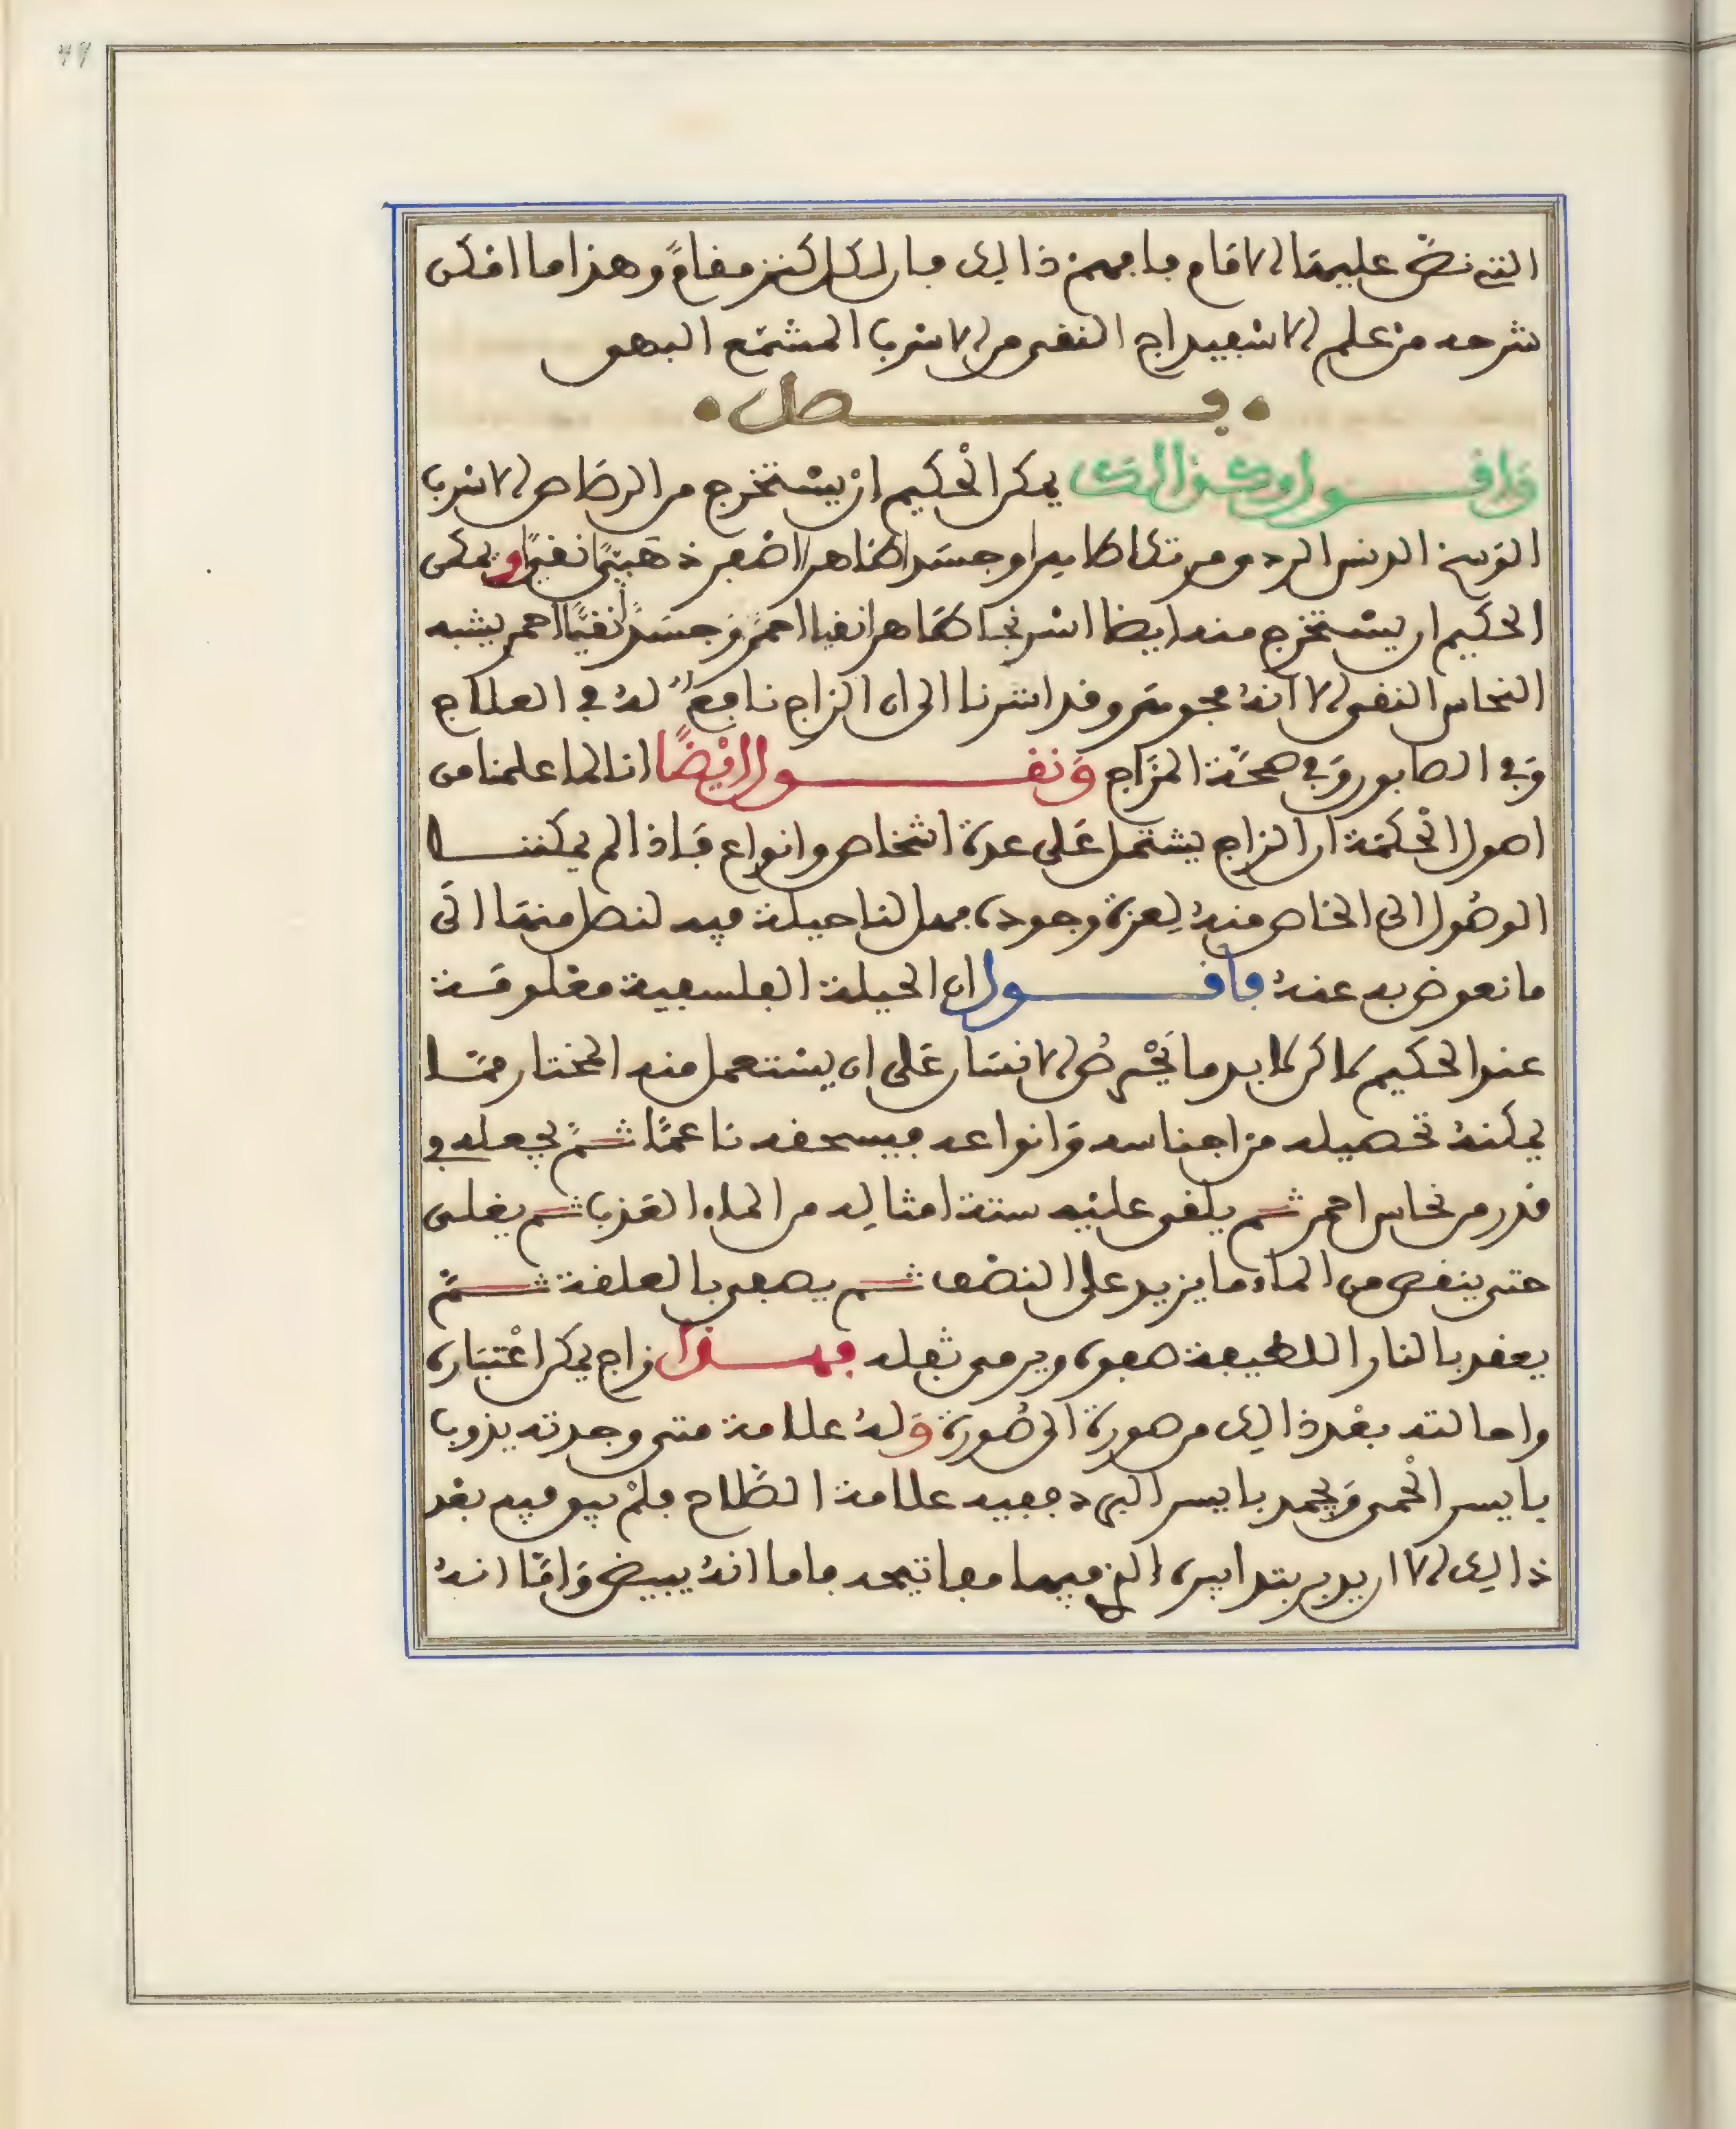 التي نصّ عليها الامام فافهم ذالك فان لكل كنز مقامٌ وهذا ما امكن
شرحه من علم الاسفيداج النقي من الاسرب المشمّع البهي
فصل
وَاقول وكذالك يمكن الحْكيم انْ يسْتخرج من الرصَاص الاسرب
الوَسخ الدنس الرديء مرتكا كاملا وجسَدا طاهرا اصْفر ذهَبيًّا نقيًّا ويمكن
الحكيم ان يسْتخرج منه ايضا اسرنجا طَاهرا نقيا احمرَ وَجسَدًا نقيًّا احمر يشبه
النحاس النقي الا انهُ مجوسَي وقد اشرنا الى ان الزاج نافعٌ لهُ في العلاج
وَفي الصابون وَفي صحَّة المزَاج وَنقول ايْضًا اننا لما علمنا من
اصول الحْكمَة ان الزاج يشتمل عَلى عدة اشخاص وانواع فَاذا لم يمكننا
الوصُول الى الخاص منهُ لِعزة وجوده فهل لنا حيلة فيه لنصل منهَا الىَ
ما نعوض به عنهُ فاقول ان الحيلة الفلسفية مغلوقَة
عند الحكيم لاكن لابد ما نَحْرصُ الانسَان عَلى ان يسْتعمل منه المختار ممَّا
يمكنهُ تحصيله من اجناسه وَانواعه فيسحقه ناعمًا ثمَّ يجعله في
قدر من نحاس احمر ثم يلقى عليْه ستة امثالِه من الماء العَذب ثم يغلى
حتى ينقص من الماء ما يزيد على النصْف ثم يصفى بالعلقة ثمَّ
يعقد بالنار اللطيفة صفوه ويرمى ثفله فهذا زاج يمكن اعْتبَاره
واحالته بعْد ذالك من صورة الى صُورة وَلهُ علامة متى وجدته يذوب
بايسر الحْمي وَيجمد بايسر البرد ففيه علامة الصَّلاح فلمْ يبق فيه بعْد
ذالك الا ان يدبر بتدابيره التي فيها مفاتيحه فاما انهُ يبيض وَامَّا انهُ